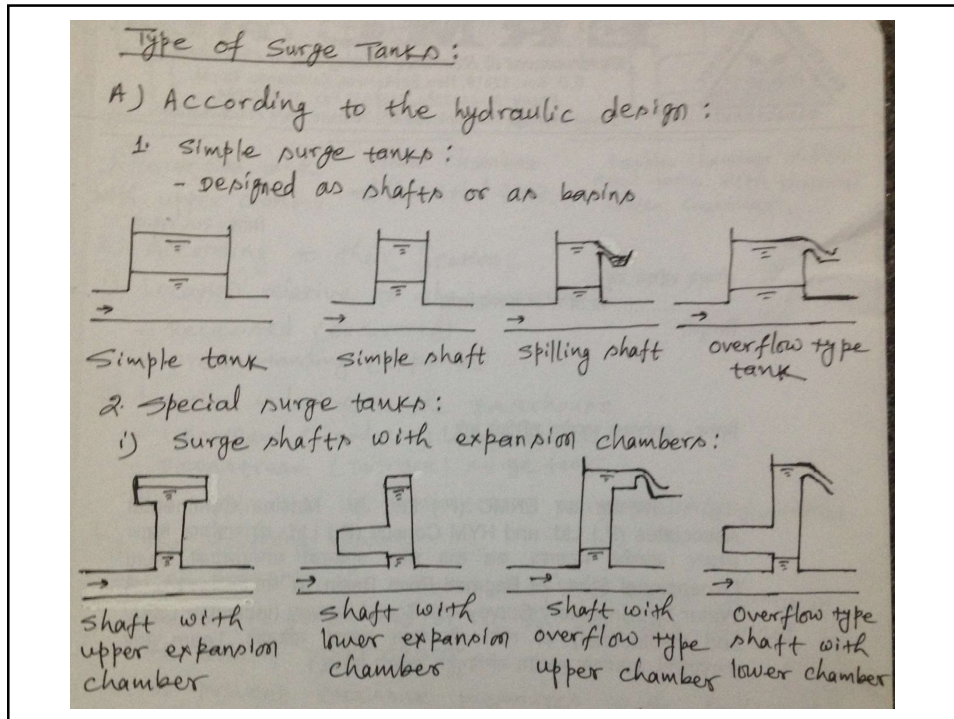 Type of Surge Tanks:
A) According to the hydraulic design:
1. Simple surge tanks:
- Designed as shafts or as basins
Simple tank
simple shaft
spilling shaft
overflow type
tank
2. Special surge tanks:
i) Surge shafts with expansion chambers:
shaft with
upper expansion
chamber
shaft with
lower expansion
chamber
shaft with
overflow type
upper chamber
Overflow type
shaft with
lower chamber